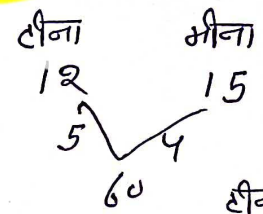 टीना मीना
12 15
5 4
60
टीन